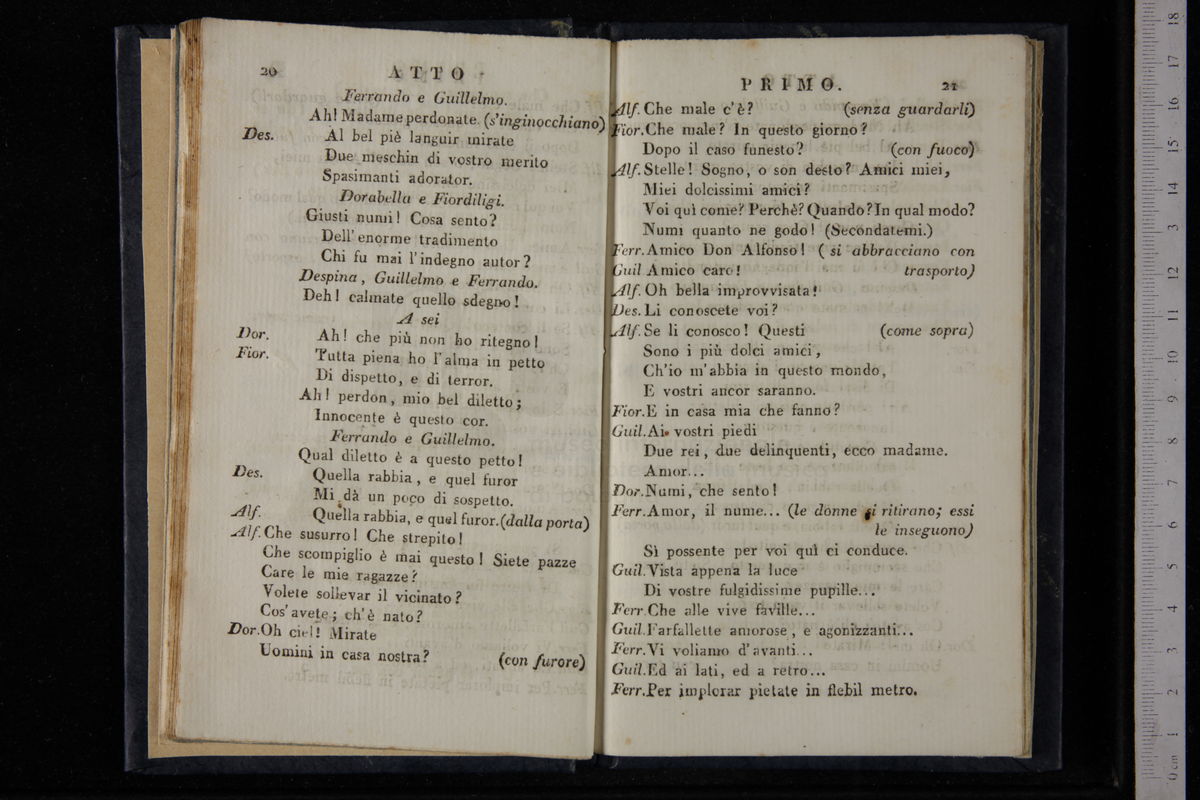 20 ATTO
Ferrando e Guillelmo.
Ah! Madame perdonate. (s'inginocchiano)
Des. Al bel piè languir mirate
Due meschin di vostro merito
Spasimanti adorator.
Dorabella e Fiordiligi.
Giusti numi! Cosa sento?
Dell'enorme tradimento
Chi fu mai l'indegno autor?
Despina, Guillelmo e Ferrando.
Deh! calmate quello sdegno!
A sei
Dor. Ah! che più non ho ritegno!
Fior. Tutta piena ho l'alma in petto
Di dispetto, e di terror.
Ah! perdon, mio bel diletto;
Innocente è questo cor.
Ferrando e Guillelmo.
Qual diletto è a questo petto!
Des. Quella rabbia, e quel furor
Mi dà un poço di sospetto.
Alf. Quella rabbia, e quel furor. (dalla porta)
Alf. Che susurro! Che strepito!
Che scompiglio è mai questo! Siete pazze
Care le mie ragazze?
Volete sollevar il vicinato?
Cos'avete; ch'è nato?
Dor. Oh ciel! Mirate
Uomini in casa nostra? (con furore)
PRIMO. 21
Alf. Che male c'è? (senza guardarli)
Fior. Che male? In questo giorno?
Dopo il caso funesto? (con fuoco)
Alf. Stelle! Sogno, o son desto? Amici miei,
Miei dolcissimi amici?
Voi quì come? Perchè? Quando? In qual modo?
Numi quanto ne godo! (Secondatemi.)
Ferr. Amico Don Alfonso! (si abbracciano con
Guil Amico caro! trasporto)
Alf. Oh bella improvvisata!
Des. Li conoscete voi?
Alf. Se li conosco! Questi (come sopra)
Sono i più dolci amici,
Ch'io m'abbia in questo mondo,
E vostri ancor saranno.
Fior. E in casa mia che fanno?
Guil. Ai vostri piedi
Due rei, due delinquenti, ecco madame.
Amor...
Dor. Numi, che sento!
Ferr. Amor, il nume... (le donne si ritirano; essi
le inseguono)
Sì possente per voi quì ci conduce.
Guil. Vista appena la luce
Di vostre fulgidissime pupille...
Ferr. Che alle vive faville...
Guil. Farfallette amorose, e agonizzanti...
Ferr. Vi voliamo d'avanti...
Guil. Ed ai lati, ed a retro...
Ferr. Per implorar pietate in flebil metro.
0 cm 1 2 3 4 5 6 7 8 9 10 11 12 13 14 15 16 17 18